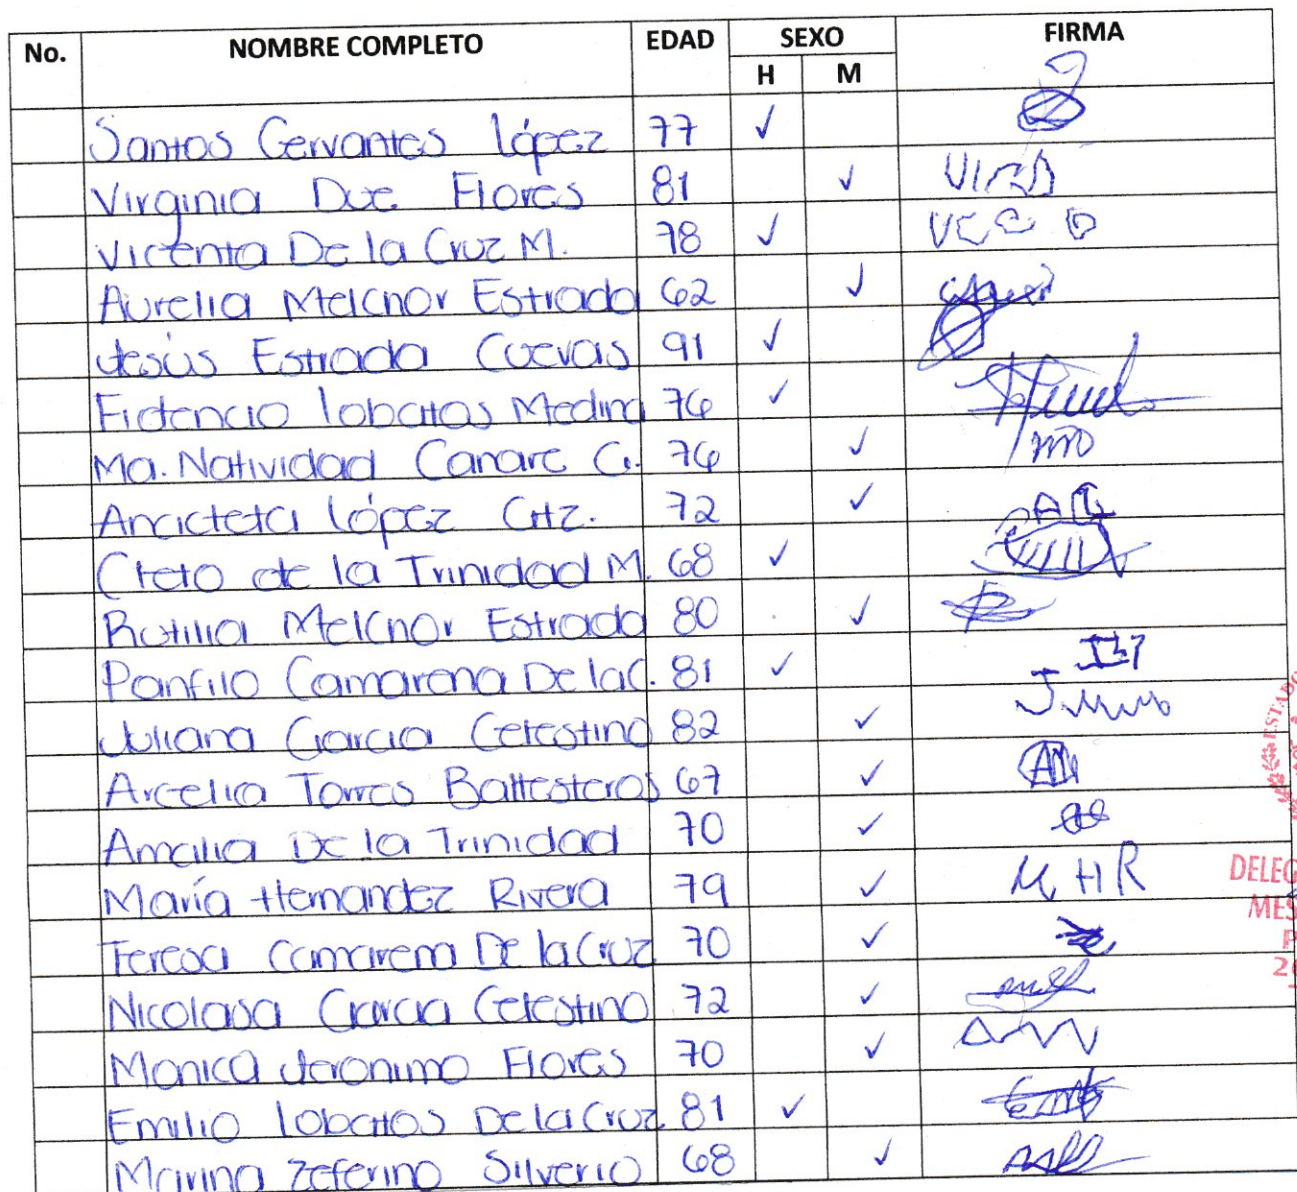 No. NOMBRE COMPLETO EDAD SEXO FIRMA
H M
Santos Cervantes López 77 ✓
Virginia Due Flores 81 ✓
Vicenta De la Cruz M. 78 ✓
Aurelia Melchor Estrada 62 ✓
Jesús Estrada Cuevas 91 ✓
Fidencio lobatos Medina 76 ✓
Ma. Natividad G. 76 ✓
López Crtz. 72 ✓
Cleto de la Trinidad M. 68 ✓
Rutilia Melchor Estrada 80 ✓
Panfilo Camarena De la C. 81 ✓
Juliana Garcia Celestino 82 ✓
Arcelia Torres Ballesteros 67 ✓
Amalia De la Trinidad 70 ✓
María Hernandez Rivera 79 ✓ M H R
Teresa Camarena De la Cruz 70 ✓
Nicolasa Garcia Celestino 72 ✓
Monica Jeronimo Flores 70 ✓
Emilio lobatos De la Cruz 81 ✓
Marina Zeferino Silverio 68 ✓
DELEG
MES